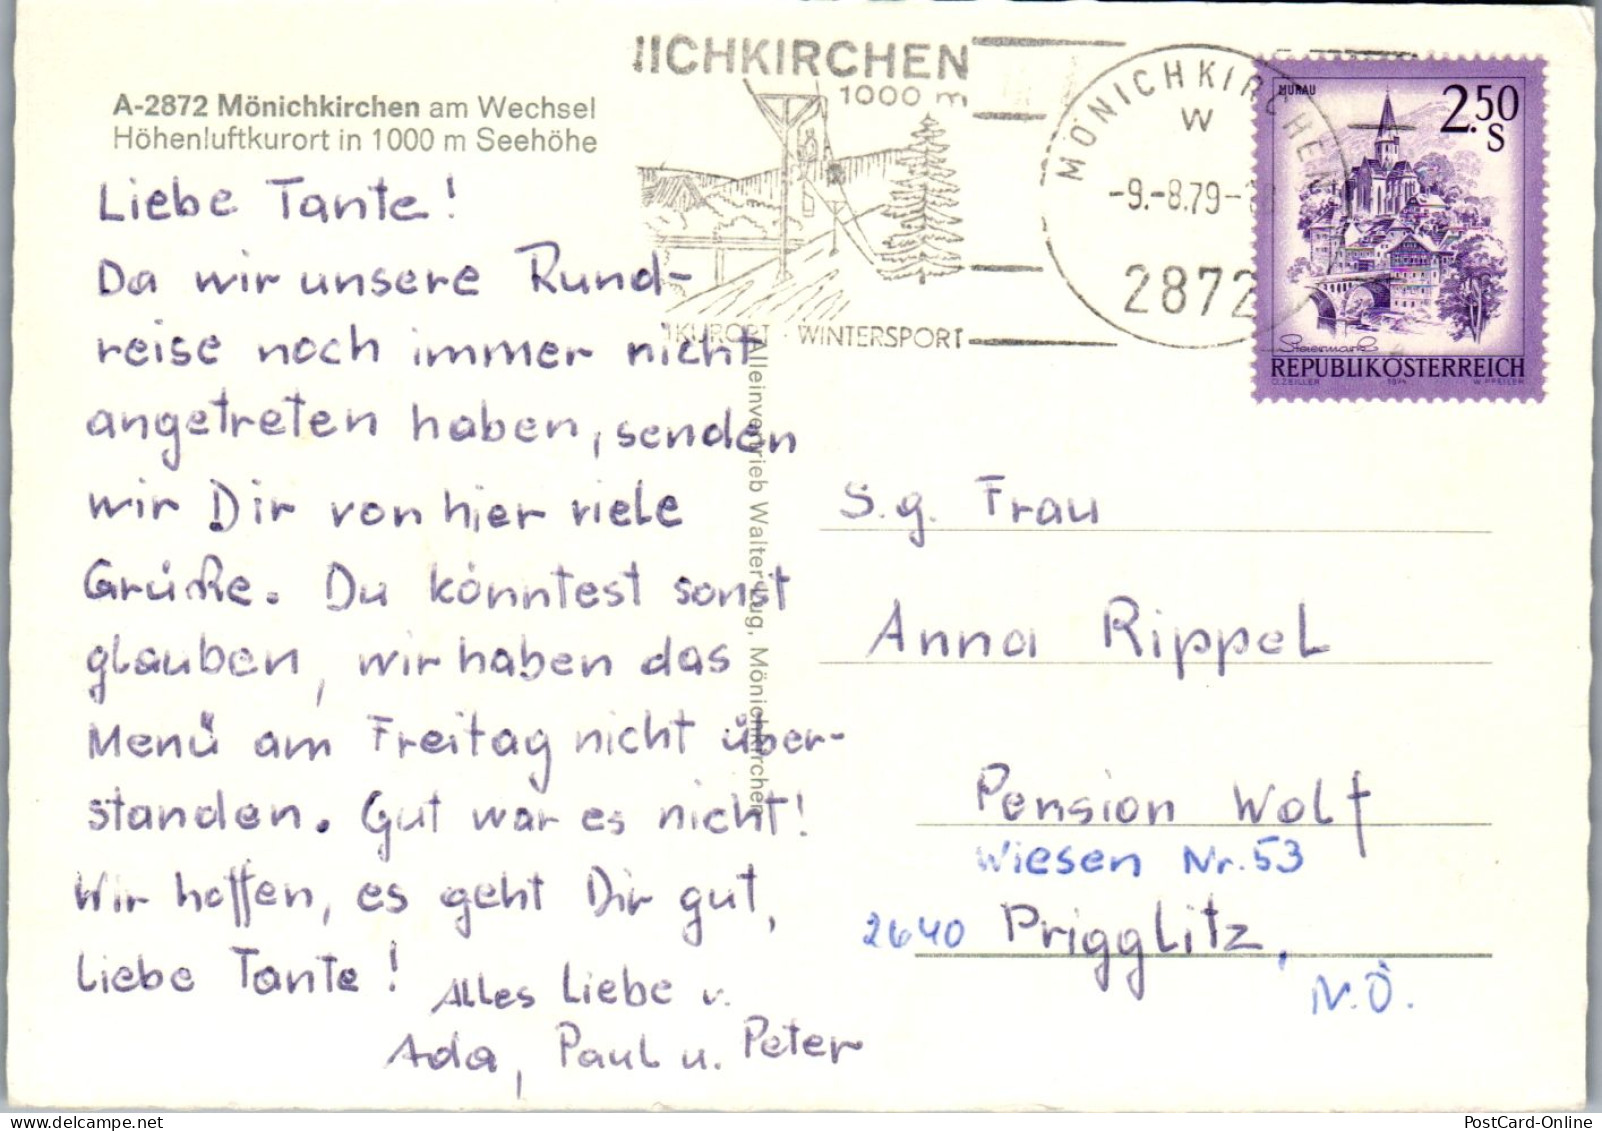 A-2872 Mönichkirchen am Wechsel
Höhenluftkurort in 1000 m Seehöhe
Liebe Tante!
Da wir unsere Rund-
reise noch immer nicht
angetreten haben, senden
wir Dir von hier viele
Grüße. Du könntest sonst
glauben, wir haben das
Menü am Freitag nicht über-
standen. Gut war es nicht!
Wir hoffen, es geht Dir gut,
liebe Tante!
Alles Liebe v.
Ada, Paul u. Peter
Alleinvertrieb Walter Lug, Mönichkirchen
NICHKIRCHEN
1000 m
KURORT · WINTERSPORT
MÖNICHKIRCHEN
W
-9.-8.79-
2872
MURAU
2.50
S
Steiermark
REPUBLIK ÖSTERREICH
O. ZEILLER 1974 W. PFEILER
S.g. Frau
Anna Rippel
Pension Wolf
Wiesen Nr. 53
2640 Prigglitz,
N.Ö.
PostCard-Online